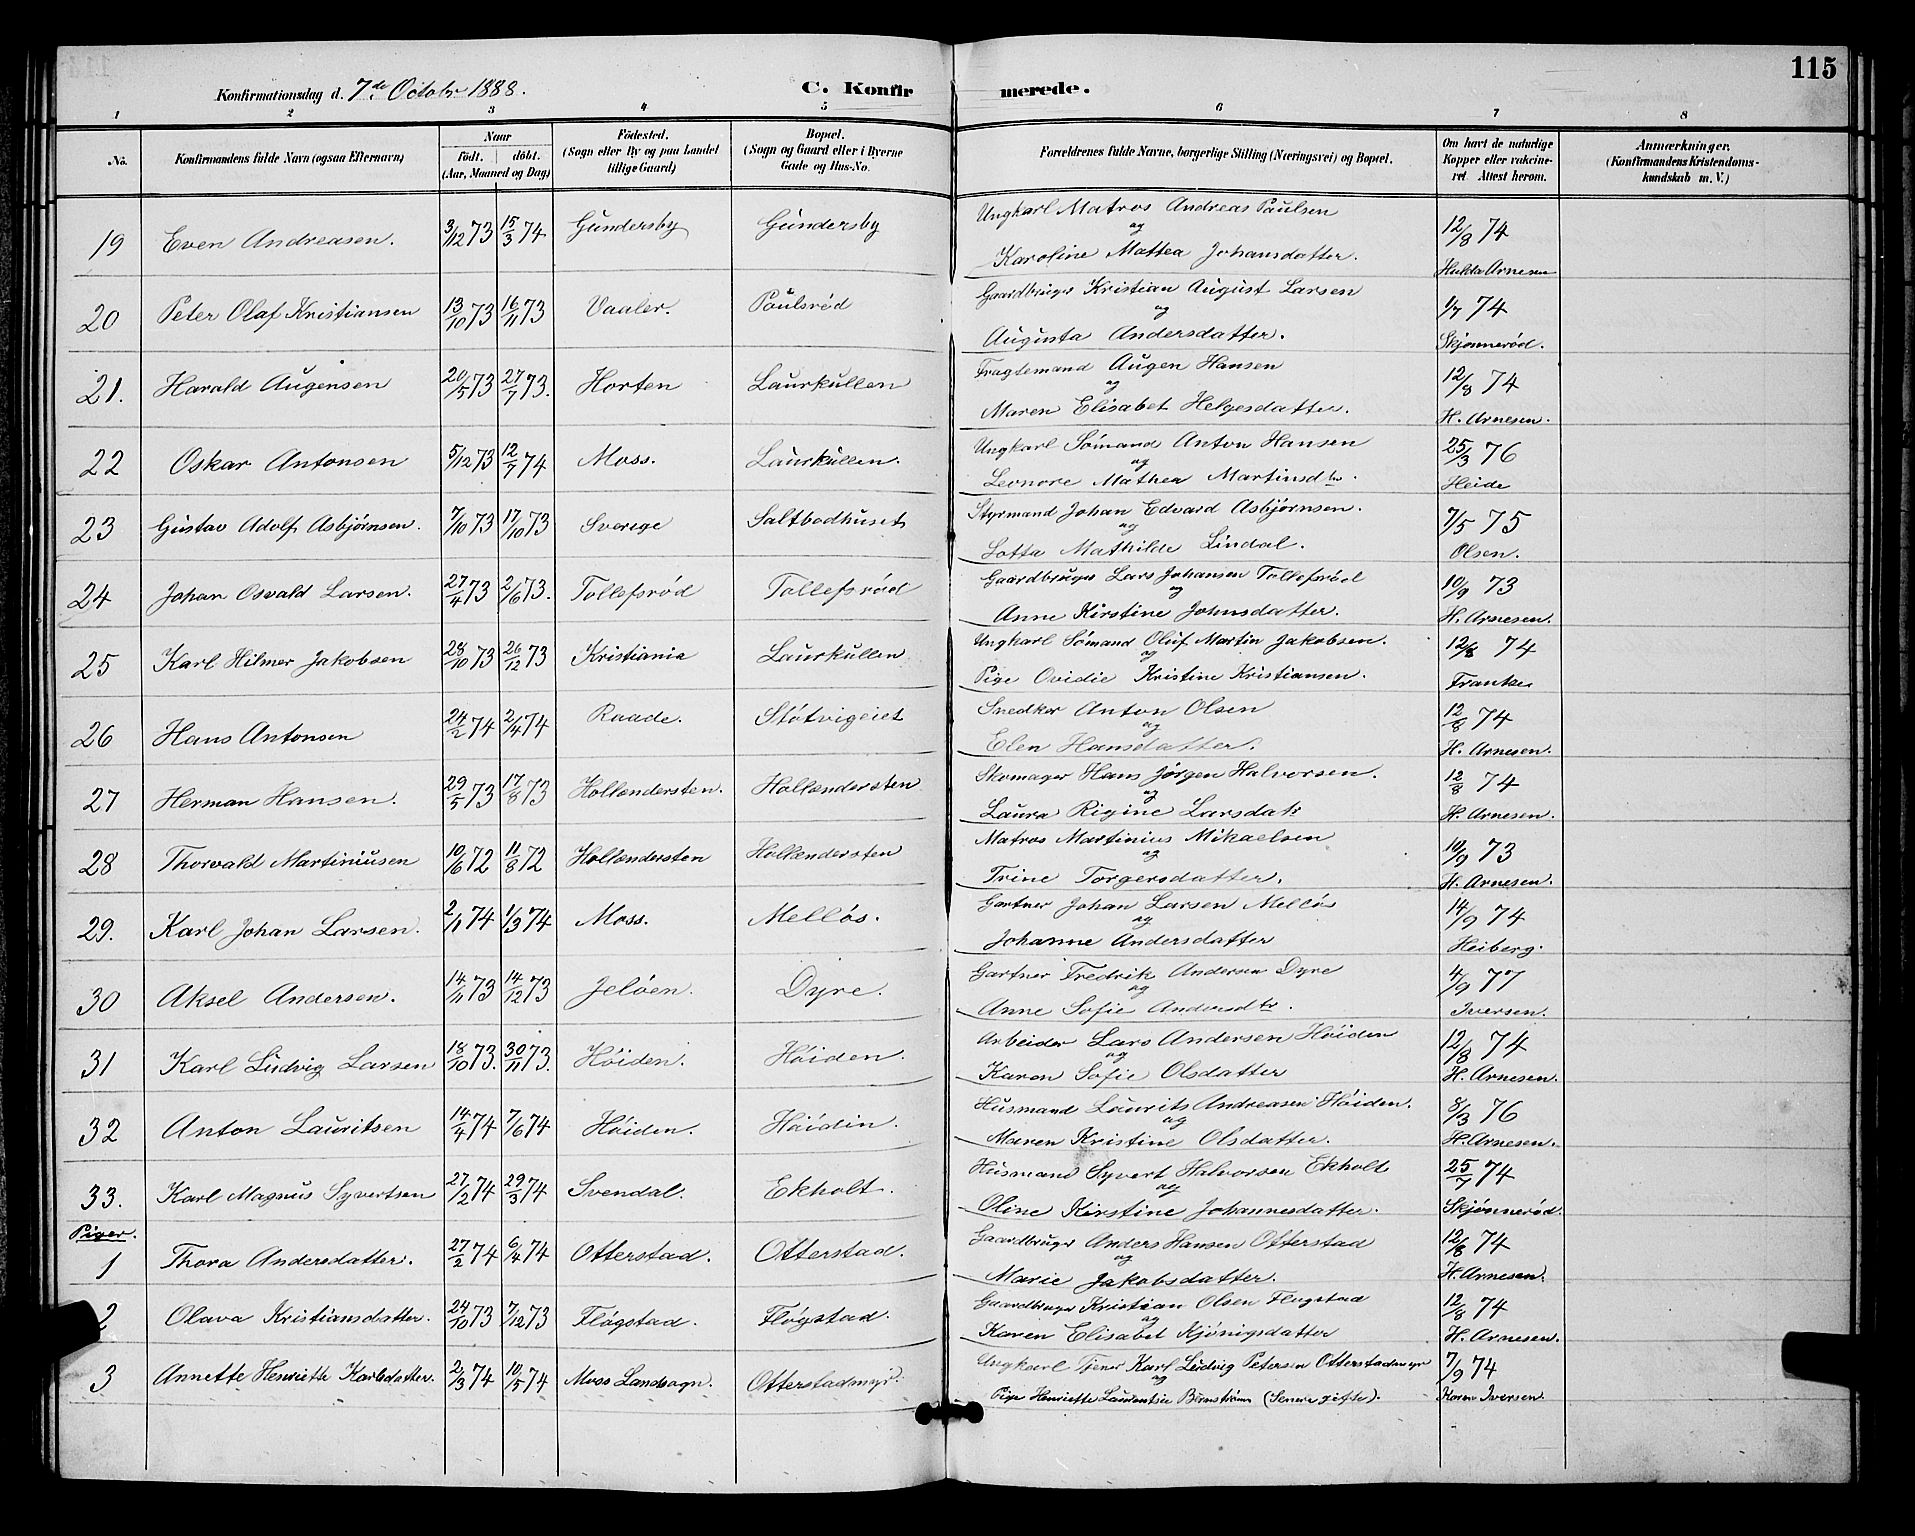 115
Konfirmationsdag d. 7de Octobr 1888. C. Konfir merede.
1 2 3 4 5 6 7 8
No. Konfirmandens fulde Navn (ogsaa Efternavn) Naar født. døbt. (Aar, Maaned og Dag) Fødested. (Sogn eller By og paa Landet tillige Gaard) Bopæl. (Sogn og Gaard eller i Byerne Gade og Hus-No. Forældrenes fulde Navne, borgerlige Stilling (Næringsvei) og Bopæl. Om havt de naturlige Kopper eller vakcineret. Attest herom. Anmærkninger. (Konfirmandens Kristendomskundskab m. V.)
19 Even Andreasen. 3/12 73 15/3 74 Gundersby Gundersby Ungkarl Matros Andreas Paulsen og Karoline Mathea Johansdatter. 12/8 74 Hulda Arnesen
20 Peter Olaf Kristiansen 13/10 73 16/11 73 Vaaler. Paulsrød Gaardbruger Kristian August Larsen og Augusta Andersdatter. 1/7 74 Skjønnerød.
21. Harald Augensen 20/5 73 27/7 73. Horten Laurkullen Fragtemand Augen Hansen og Maren Elisabet Helgesdatter. 12/8 74 H. Arnesen.
22 Oskar Antonsen 5/12 73 12/7 74 Moss. Laurkullen. Ungkarl Sømand Anton Hansen og Leonore Mathea Martinsdtr. 25/3 76 Heide
23 Gustav Adolf Asbjørnsen. 7/10 73 17/10 73 Sverige Saltbodhuset Styrmand Johan Edvard Asbjørnsen. og Lotta Mathilde Lindal. 7/5 75 Olsen.
24 Johan Osvald Larsen. 27/4 73 2/6 73. Tollefsrød Tollefsrød Gaardbruger Lars Johansen Tollefsrød og Anne Kirstine Johnsdatter. 10/9 73 H. Arnesen.
25 Karl Hilmer Jakobsen 28/10 73 26/12 73 Kristiania Laurkullen Ungkarl Sømand Oluf Martin Jakobsen. og Pige Ovidie Kristine Kristiansen. 12/8 74 Frantze
26 Hans Antonsen 24/2 74 2/4 74 Raade. Støtvigeiet Snedker Anton Olsen og Elen Hansdatter. 12/8 74 H. Arnesen.
27 Herman Hansen. 29/5 73 17/8 73 Hollendersten. Hollendersten Skomager Hans Jørgen Halvorsen. og Laura Rigine Larsdatr 12/8 74 H. Arnesen.
28 Thorvald Martiniusen 10/6 72 11/8 72 Hollendersten Hollendersten Matros Martinius Mikaelsen og Trine Torgersdatter. 10/9 73 H. Arnesen.
29. Karl Johan Larsen. 2/1 74 1/3 74 Moss. Melløs. Gartner Johan Larsen Melløs og Johanne Andersdatter 14/9 74 Heiberg.
30 Aksel Andersen. 14/11 73 14/12 73 Jeløen. Dyre. Gartner Fredrik Andersen Dyre og Anne Sofie Andersdtr. 4/9 77 Iversen.
31 Karl Ludvig Larsen 18/10 73. 30/11 73. Høiden. Høiden. Arbeider Lars Andersen Høiden og Karen Sofie Olsdatter 12/8 74 H. Arnesen.
32 Anton Lauritsen 14/4 74 7/6 74 Høiden. Høidin. Husmand Laurits Andreasen Høiden. og Maren Kristine Olsdatter. 8/3 76 H. Arnesen.
33. Karl Magnus Syvertsen 27/2 74 29/3 74 Svendal. Ekholt. Husmand Syvert Halvorsen Ekholt og Oline Kirstine Johannesdatter. 25/7 74 Skjønnerød.
Piger.
1 Thora Andersdatter. 27/2 74 6/4 74 Otterstad. Otterstad. Gaardbruger Anders Hansen Otterstad og Marie Jakobsdatter. 12/8 74 H. Arnesen.
2 Olava Kristiansdatter. 24/10 73 7/12 73 Fløgstad. Fløgstad. Gaardbruger Kristian Olsen Flugstad og Karen Elisabet Kjønigsdatter 12/8 74 H. Arnesen.
3 Annette Henriette Karlsdatter. 2/3 74 10/5 74 Moss Landsogn. Otterstadmyr. Ungkarl Tjener Karl Ludvig Petersen Otterstadmyr og Pige Henriette Laurentsie (Senere gifte). 7/9 74 Karen Iversen.